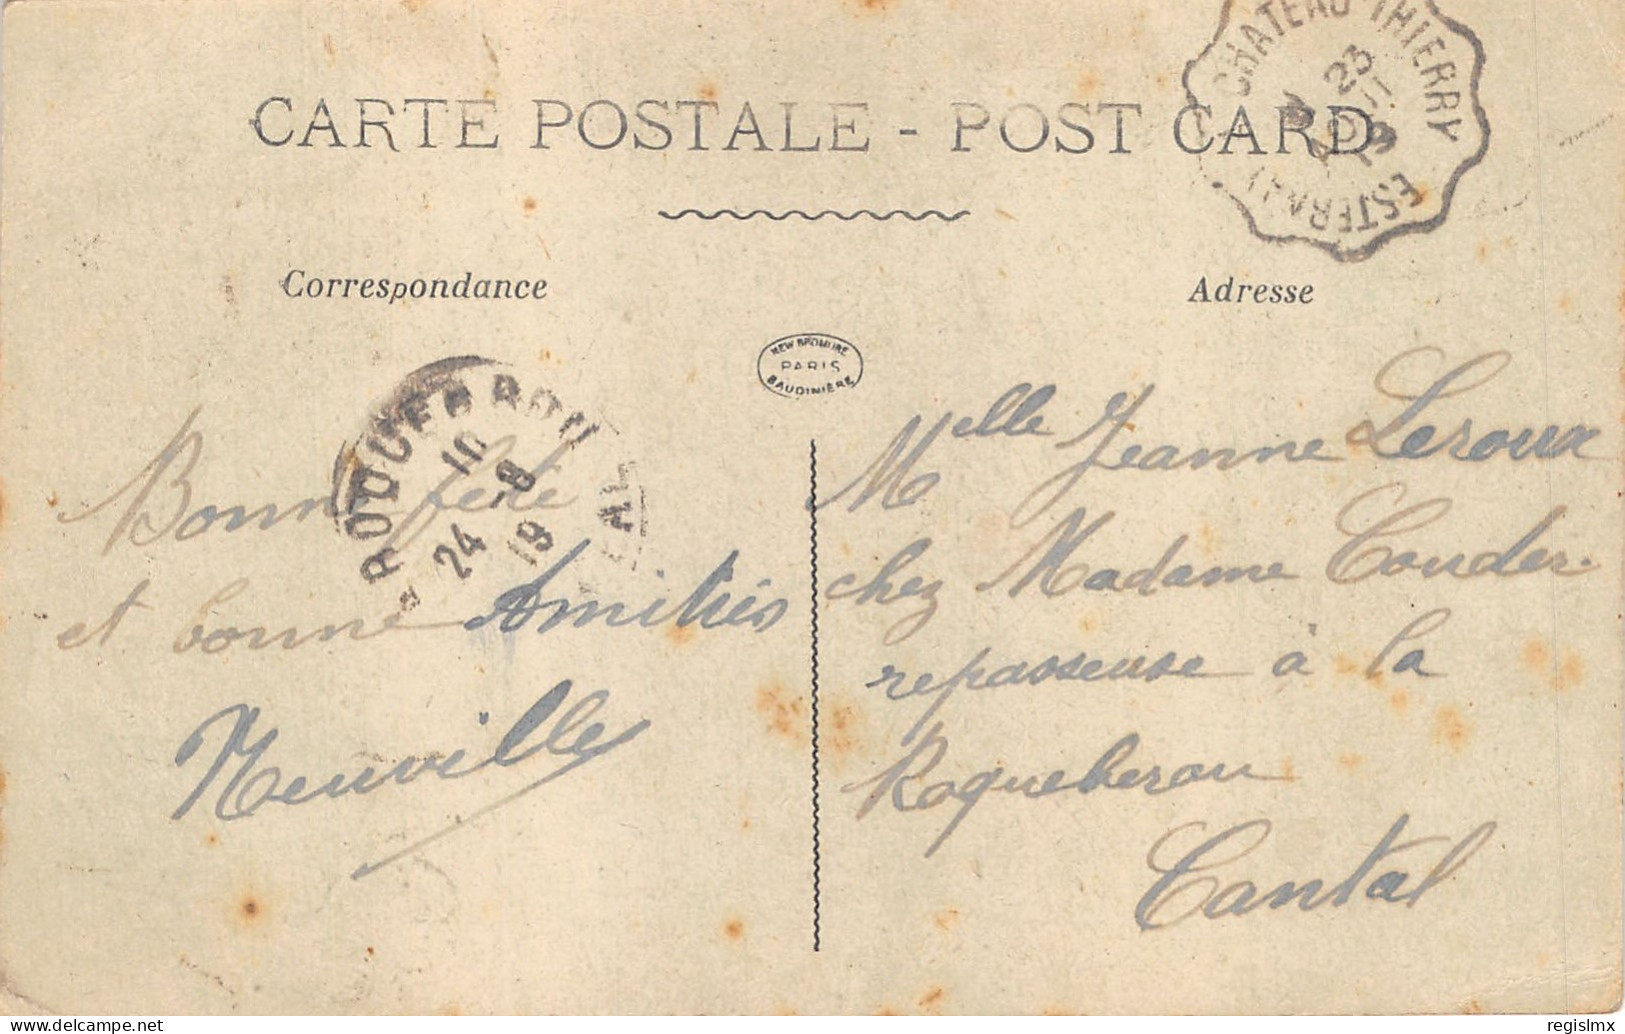 CARTE POSTALE - POST CARD
CHATEAU-THIERRY
23
19
ESTERNAY
Correspondance
Adresse
NEW BROMURE
PARIS
BAUDINIÈRE
ROQUEBROU
10
24 -8
19
Bonne fête
et bonne Amitiés
Neuville
Melle Jeanne Leroux
chez Madame Couder
repasseuse à la
Roqueberou
Cantal
delcampe.net
regislmx